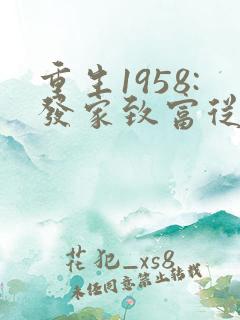 重生1958:
發家致富從
花犯_xs8
未經同意禁止轉載